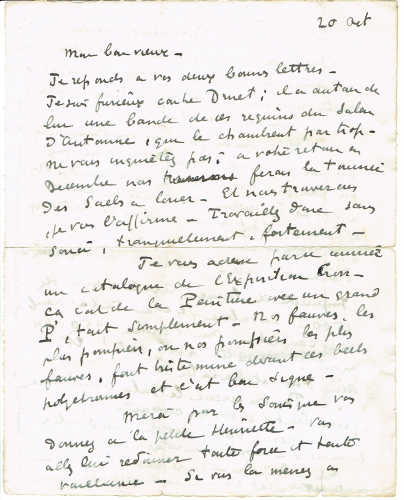 20 Oct
Mon bon vieux -
Je reponds a vos deux bonnes lettres -
Je suis furieux contre Druet ; il a autour de
lui une bande de ces requins du Salon
D'Automne, que le chambrent par trop -
ne vous inquiétez pas ; a votre retour en
Decembre nous ferons la tournée
des Salles a louer - Et nous trouverons
, je vous l'affirme - Travaillez donc sans
souci, tranquillement, fortement -
Je vous adresse par ce courrier
un catalogue de l'Exposition Cross -
ça c'est de la Peinture avec un grand
P, tout simplement - Nos fauves, les
plus pompiers, ou nos pompiers les plus
fauves, font triste mine devant ces belles
polychromes et c'est bon signe -
Merci pour les soins que vous
donnez a la petite Henriette - Vous
allez lui redonner toute force et toute
vaillance - Si vous la menez en